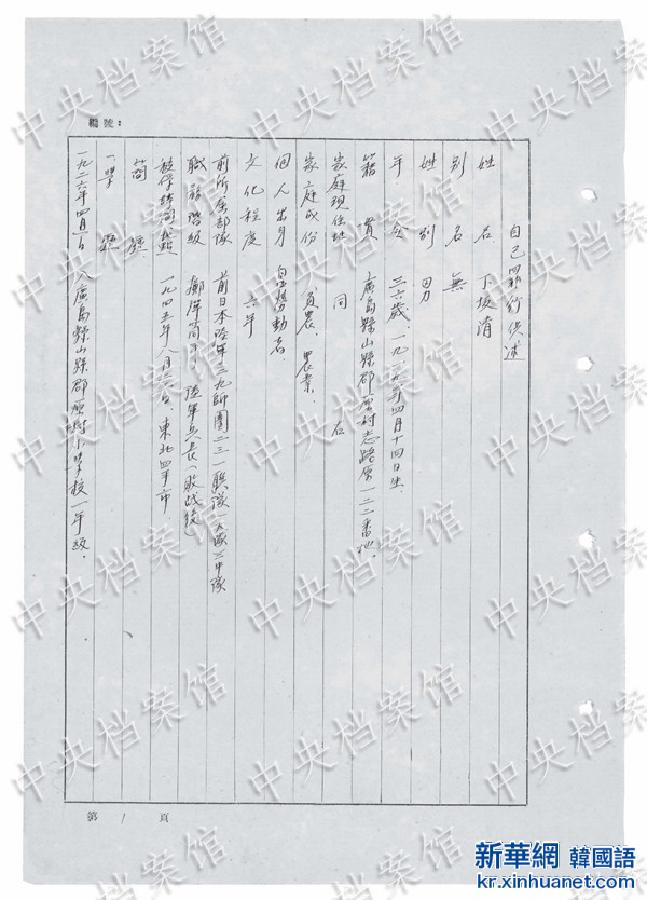 編號：
自己罪行供述
姓 名 下坂清
別 名 無
性別 男
年令 三六歲、一九一九年四月十四日生、
籍貫 廣島縣山縣郡原村志路原一二三番地、
家庭現住址 同右
家庭成份 貧農、農業、
個人出身 勞動者、
文化程度 六年
前所屬部隊 前日本陸軍三九師團二三一聯隊一大隊三中隊
職務階級 陸軍兵長
一九四五年八月 日、東北四平市
簡歷
一、學歷
一九二六年四月一日 入廣島縣山縣郡原村小學校一年級、
第1頁
中央档案馆
新華網 韓國語
kr.xinhuanet.com